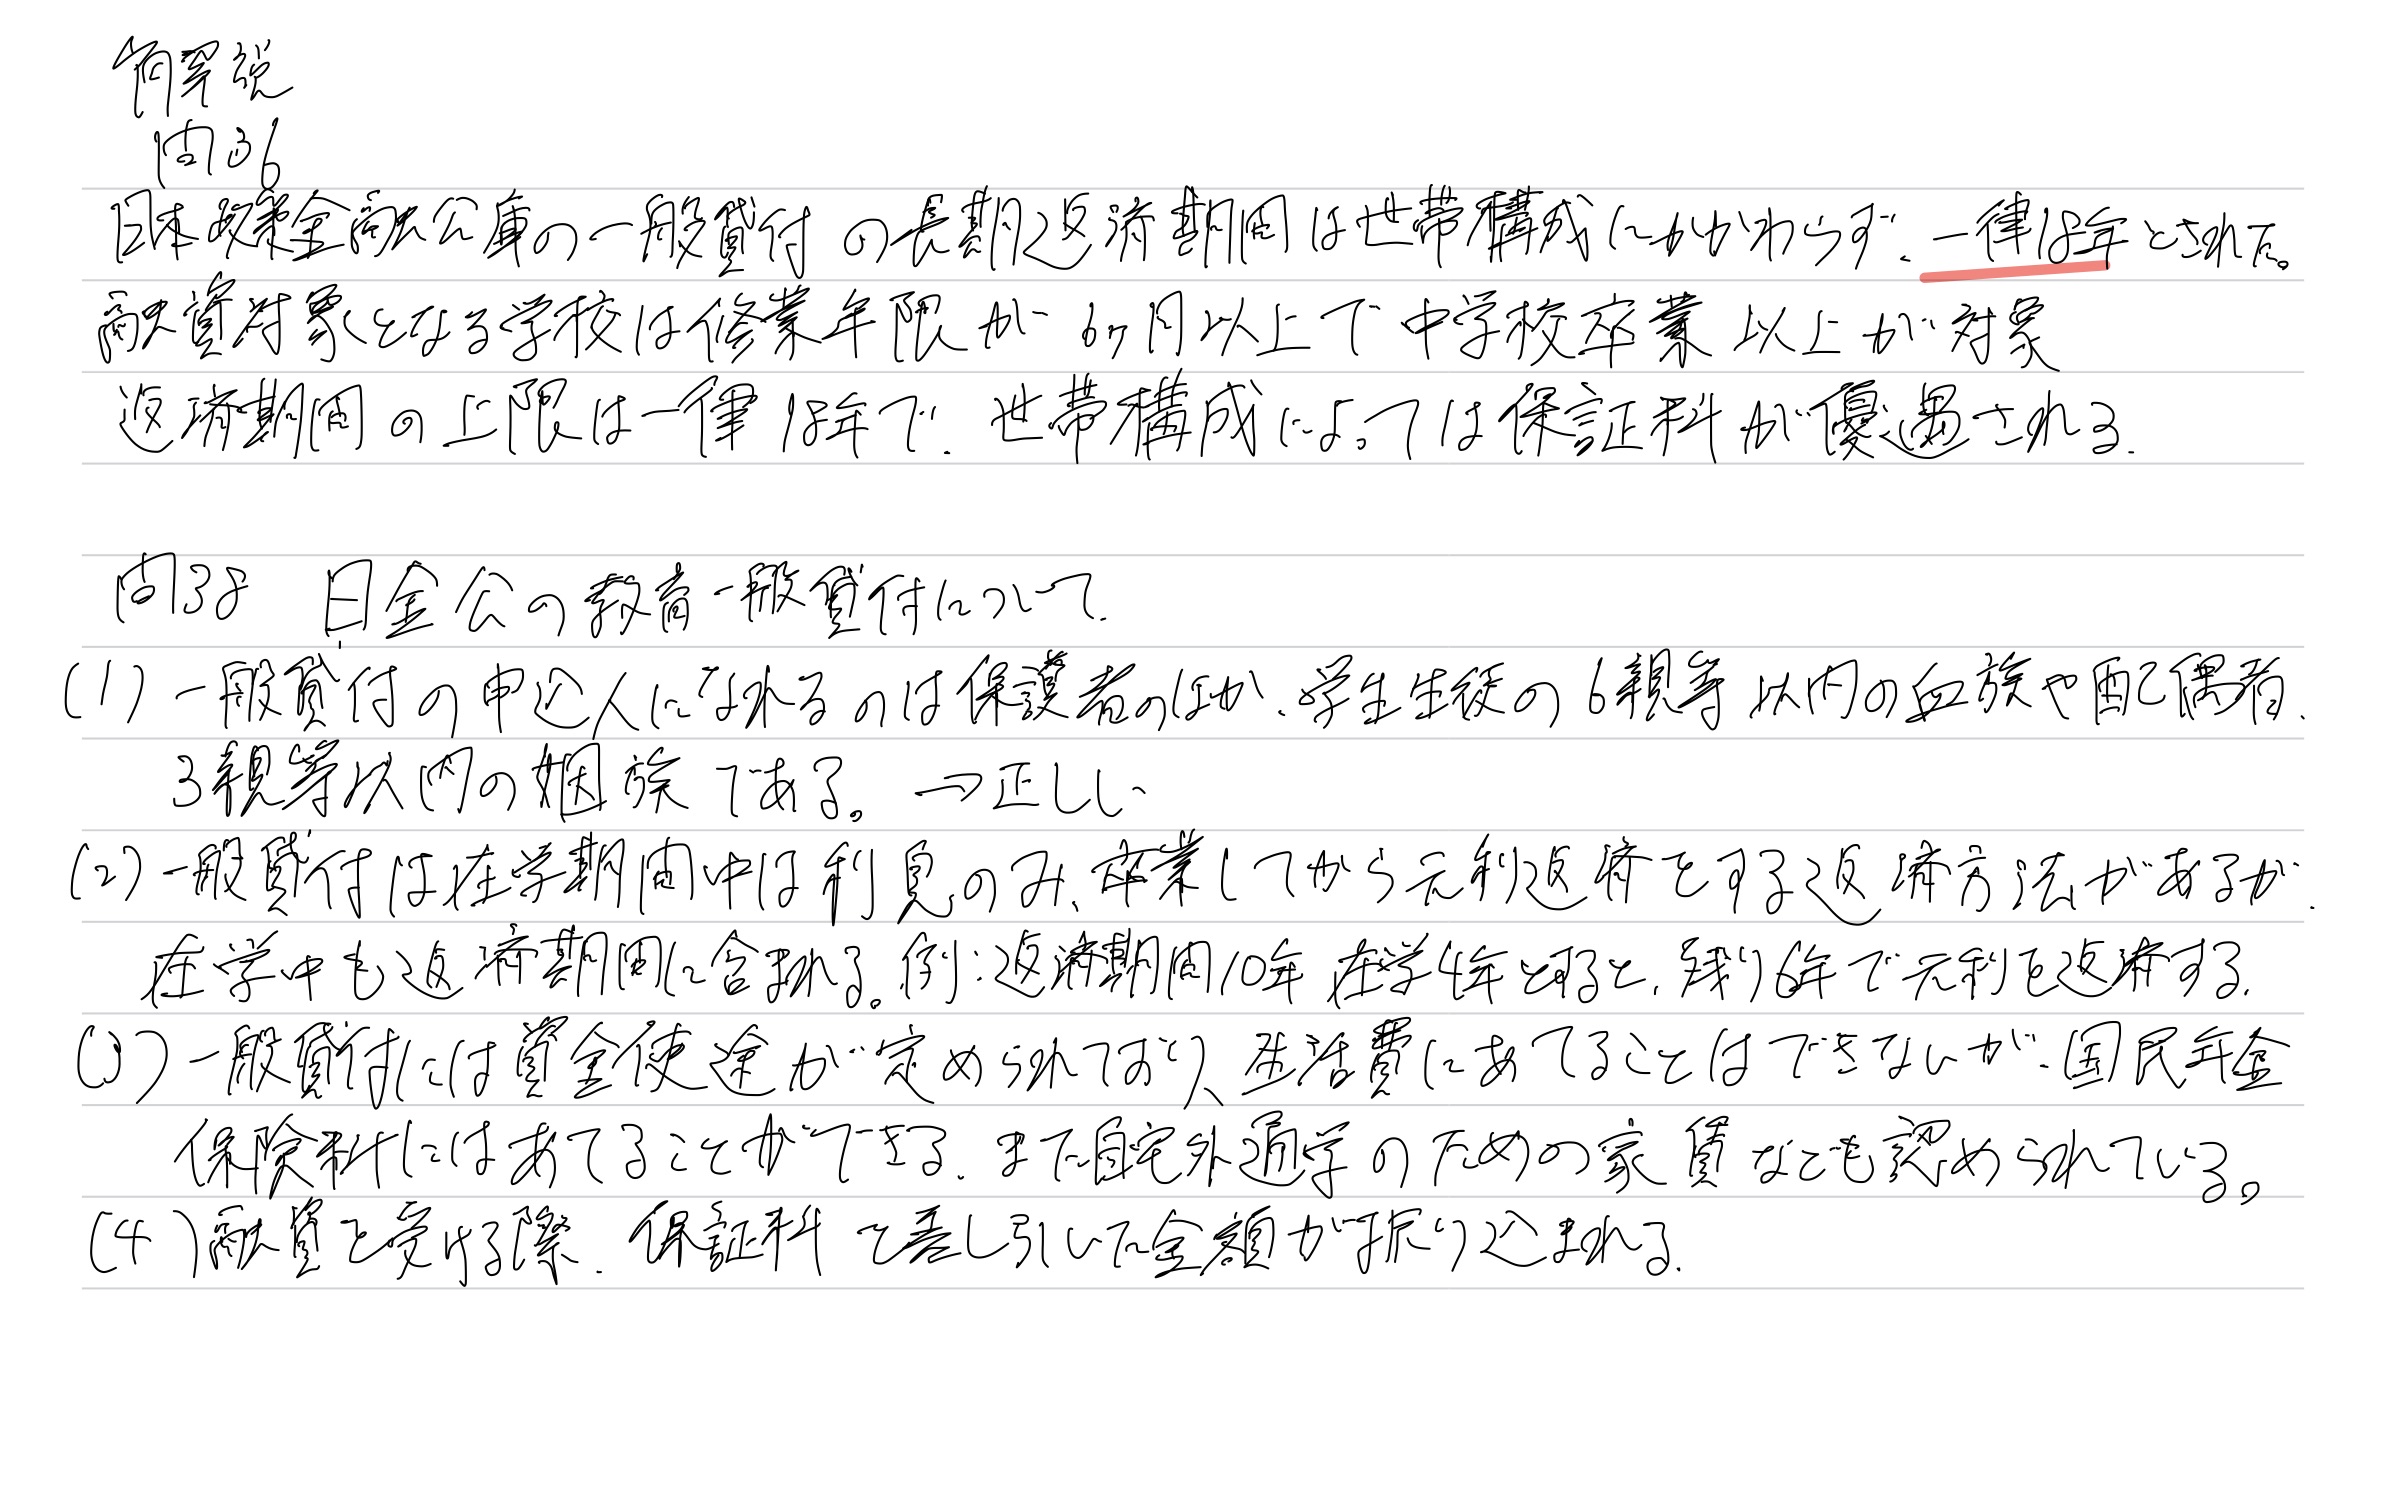 解説
問36
日本政策金融公庫の一般貸付の長期返済期間は世帯構成にかかわらず、一律18年とされた。
融資対象となる学校は修業年限が6ヶ月以上で中学校卒業以上が対象
返済期間の上限は一律18年で、世帯構成によっては保証料が優遇される.
問38 日金公の教育一般貸付について.
(1) 一般貸付の申込人になれるのは保護者のほか、学生生徒の6親等以内の血族や配偶者、
3親等以内の姻族である。→正しい
(2) 一般貸付は在学期間中は利息のみ、卒業してから元利返済をする返済方法があるが、
在学中も返済期間に含まれる。例:返済期間10年 在学4年とすると、残り6年で元利を返済する.
(3) 一般貸付には資金使途が定められており、生活費にあてることはできないが、国民年金
保険料にはあてることができる. また自宅外通学のための家賃なども認められている。
(4) 融資を受ける際、保証料を差し引いた金額が振り込まれる.